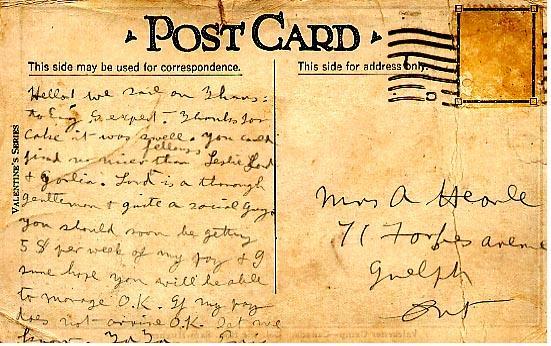 POST CARD
This side may be used for correspondence.
This side for address only.
VALENTINE'S SERIES
Hello! we sail on Thurs:
to Eng I expect. Thanks for
cake it was swell. You could
find no nicer fellows than Leslie Lord
& Gordie. Lord is a thorough
gentleman & quite a social Guy
you should soon be getting
5 $ per week of my pay & I
sure hope you will be able
to manage O.K. If my pay
does not arrive O.K. Let me
know.
Mrs A Hearle
71 Forbes avenue
Guelph
Ont